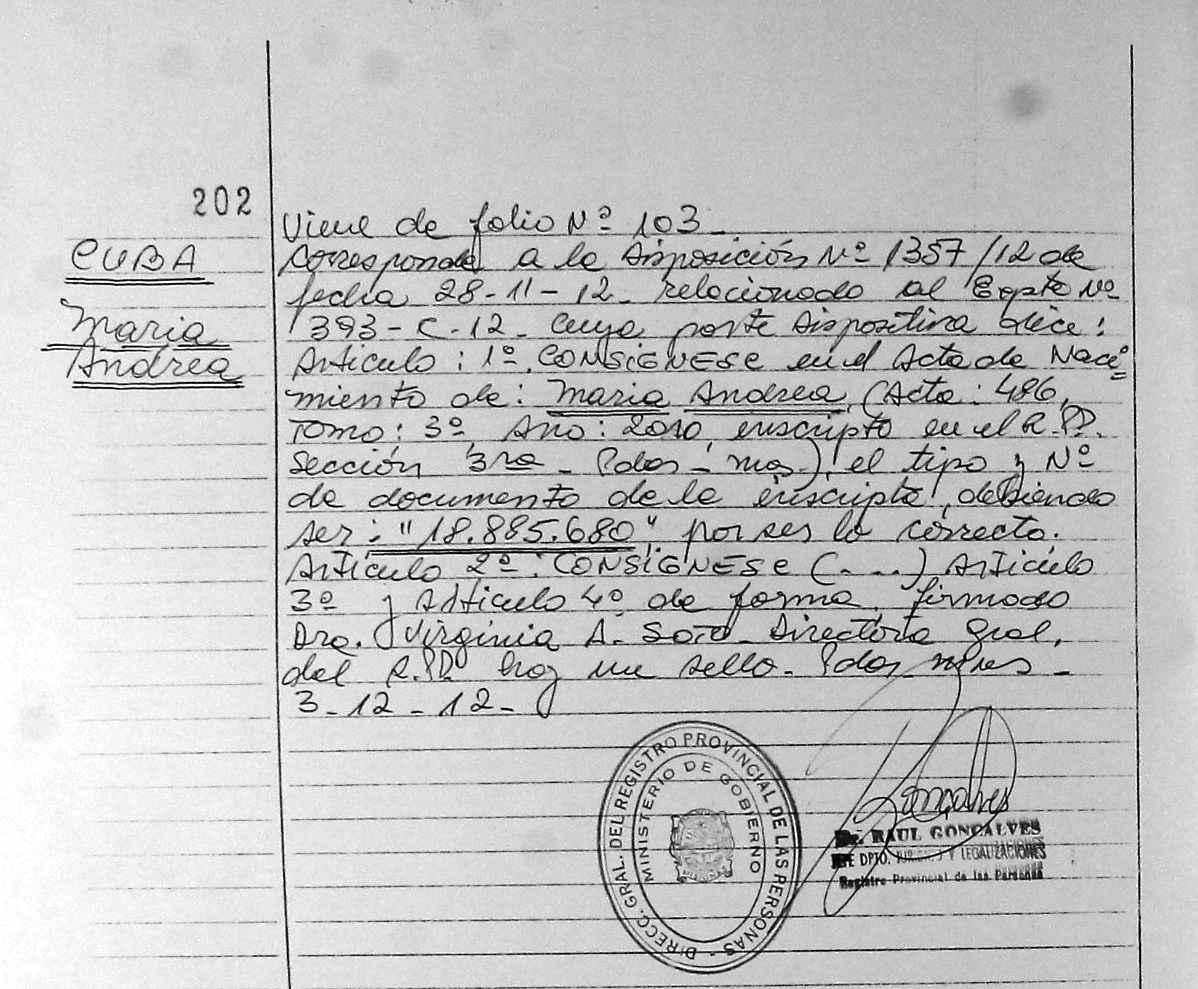 202
CUBA
Maria
Andrea
Viene de folio Nº 103-
Corresponde a la Disposición Nº 1357/12 de
fecha 28-11-12- relacionado al Expte Nº
393-C-12- cuya parte dispositiva dice:
Artículo: 1º. CONSIGNESE en el Acta de Naci=
miento de: Maria Andrea, (Acta: 486,
Tomo: 3º, Año: 2010, inscripto en el R.P.P.
Sección 3ra - Pdas - mas), el tipo y Nº
de documento de la inscripta, debiendo
ser: "18.885.680" por ser lo correcto.
Artículo 2º: CONSIGNESE (....) Artículo
3º y Artículo 4º de forma, firmado
Dra. Virginia A. Soto - Directora Gral,
del R.P.P. hay un sello. Pdas, mnes -
3-12-12-
DIRECC. GRAL. DEL REGISTRO PROVINCIAL DE LAS PERSONAS -
MINISTERIO DE GOBIERNO
Dr. RAUL GONCALVES
JEFE DPTO. JURIDICO Y LEGALIZACIONES
Registro Provincial de las Personas